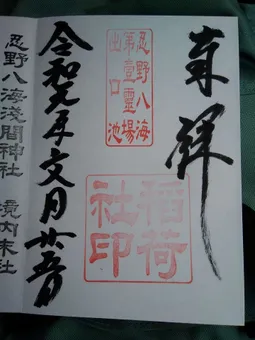 奉拝
忍野八海
第壹靈場
出口池
稲荷
社印
令和元年文月廿五日
忍野八海淺間神社 境内末社